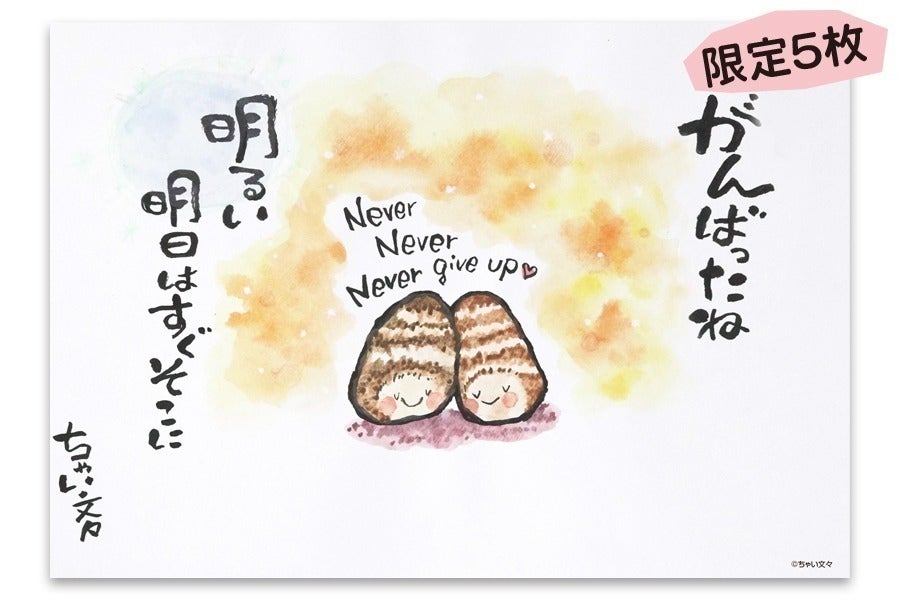 限定5枚
がんばったね
Never
Never
Never give up
明るい
明日はすぐそこに
ちゃい文々
©ちゃい文々